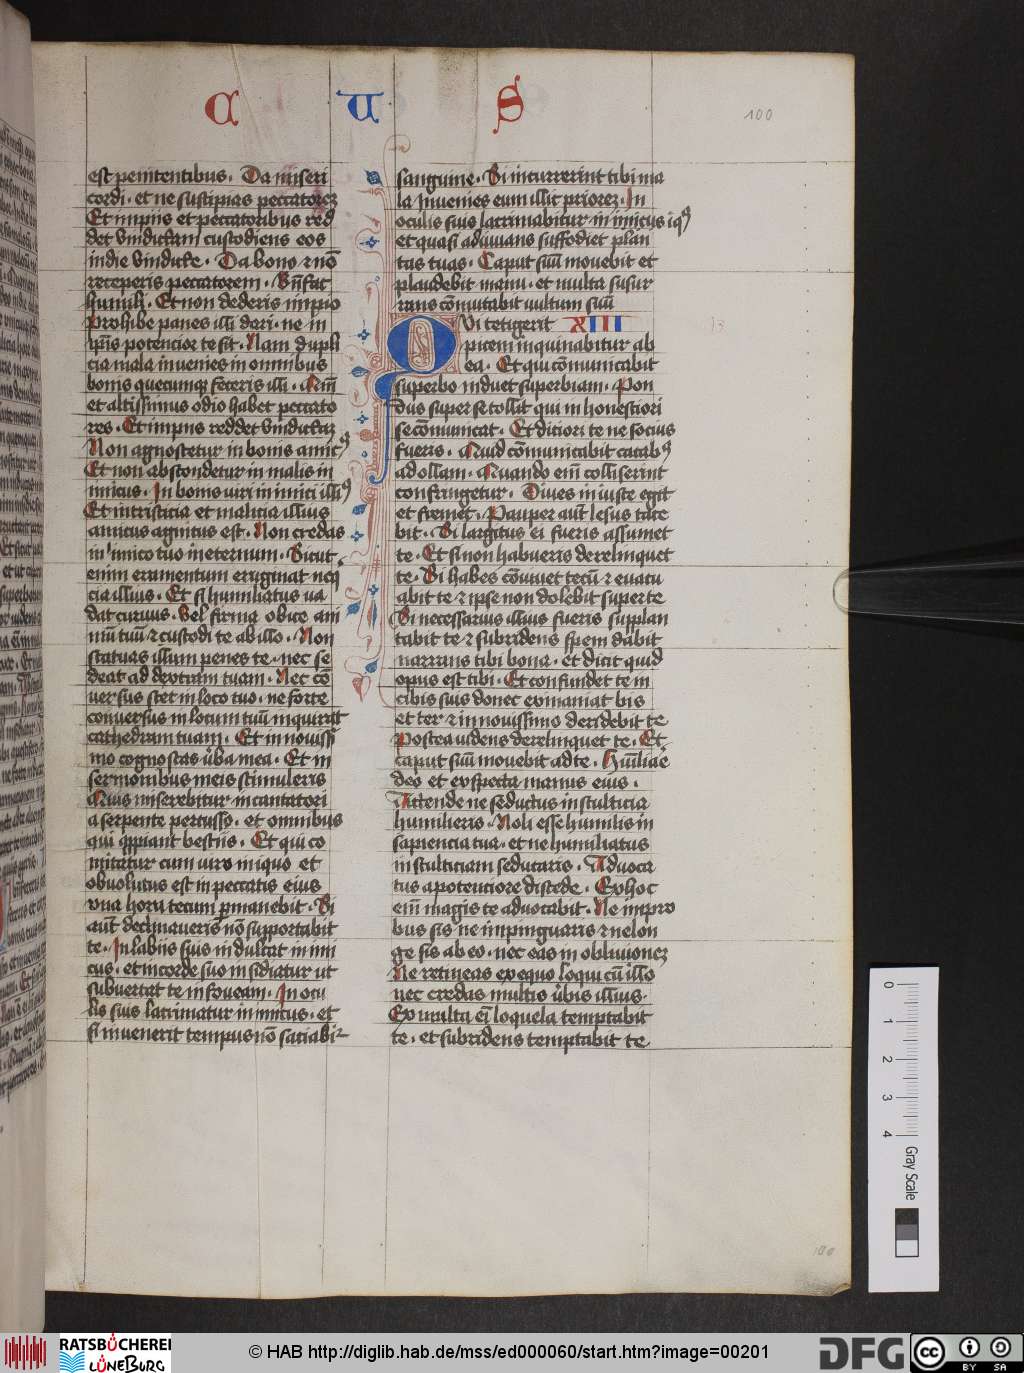 C U S
100
est penitentibus. Da miseri
cordi. et ne suscipias peccatorez
Et impiis et peccatoribus red
det vindictam custodiens eos
in die vindicte. Da bono et nō
receperis peccatorem. Bn̄fac
humili. Et non dederis impio
Prohibe panes illi dari. ne in
ip̄is potencior te sit. Nam dupli
cia mala invenies in omnibus
bonis quecumqz feceris illi. Qm̄
et altissimus odio habet peccato
res. Et impiis reddet vindictaz
Non agnoscetur in bonis amicꝰ
Et non abscondetur in malis in
imicus. In bonis viri inimici illiꝰ
Et in tristicia et malicia illius
amicus agnitus est. Non credas
inimico tuo in eternum. Sicut
enim eramentum eruginat neq̄
cia illius. Et si humiliatus va
dat curvus. Vel firma obice ani
mū tuū et custodi te ab illo. Non
statuas illum penes te. nec se
deat ad dextram tuam. Nec cō
versus stet in loco tuo. ne forte
conversus in locum tuū inquirat
cathedram tuam. Et in novissi
mo cognoscas v̄ba mea. Et in
sermonibus meis stimuleris
Quis miserebitur incantatori
a serpente percusso. et omnibus
qui appiant bestiis. Et qui co
mitatur cum viro iniquo et
obvolutus est in peccatis eius
una hora tecum permanebit. Si
aut̄ declinaveris nō supportabit
te. In labiis suis indulcat inimi
cus. et in corde suo insidiatur ut
subvertat te in foveam. In ocu
lis suis lacrimatur inimicus. et
si invenerit tempus nō saciabit̄
sanguine. Si incurrerint tibi ma
la invenies eum illic priorez. In
oculis suis lacrimabitur inimicus iq̄ꝰ
et quasi adiuvans suffodiet plan
tas tuas. Caput suū movebit et
plaudebit manu. et multa susur
rans cōmutabit vultum suū
Qui tetigerit XIII
13
picem inquinabitur ab
ea. Et qui cōmunicabit
superbo induet superbiam. Pon
dus super se tollit qui in honestiori
se cōmunicat. Et diciori te ne socius
fueris. Quid cōmunicabit cacabꝰ
ad ollam. Quando em̄ colliserint
confringetur. Dives iniuste egit
et fremet. Pauper aut̄ lesus tace
bit. Si largitus ei fueris assumet
te. Et si non habueris derelinquet
te. Si habes cōvivet tecū et evacu
abit te et ipse non dolebit super te
Si necessarius illius fueris supplan
tabit te et subridens spem dabit
narrans tibi bona. et dicit quid
opus est tibi. Et confundet te in
cibis suis donec exinaniat bis
et ter et in novissimo deridebit te
Postea videns derelinquet te. Et
caput suū movebit ad te. Humiliare
deo et exspecta manus eius.
Attende ne seductus in stulticia
humilieris. Noli esse humilis in
sapiencia tua. et ne humiliatus
in stulticiam seducaris. Advoca
tus a potenciore discede. Ex hoc
em̄ magis te advocabit. Ne impro
bus sis ne impingaris et ne lon
ge sis ab eo. nec eas in oblivionez
Ne retineas ex equo loqui cū illo
nec credas multis v̄bis illius.
Ex multa ei loquela temptabit
te. et subridens temptabit te
100
0 1 2 3 4
Gray Scale
RATSBÜCHEREI
LÜNEBURG
© HAB http://diglib.hab.de/mss/ed000060/start.htm?image=00201
DFG
cc BY SA